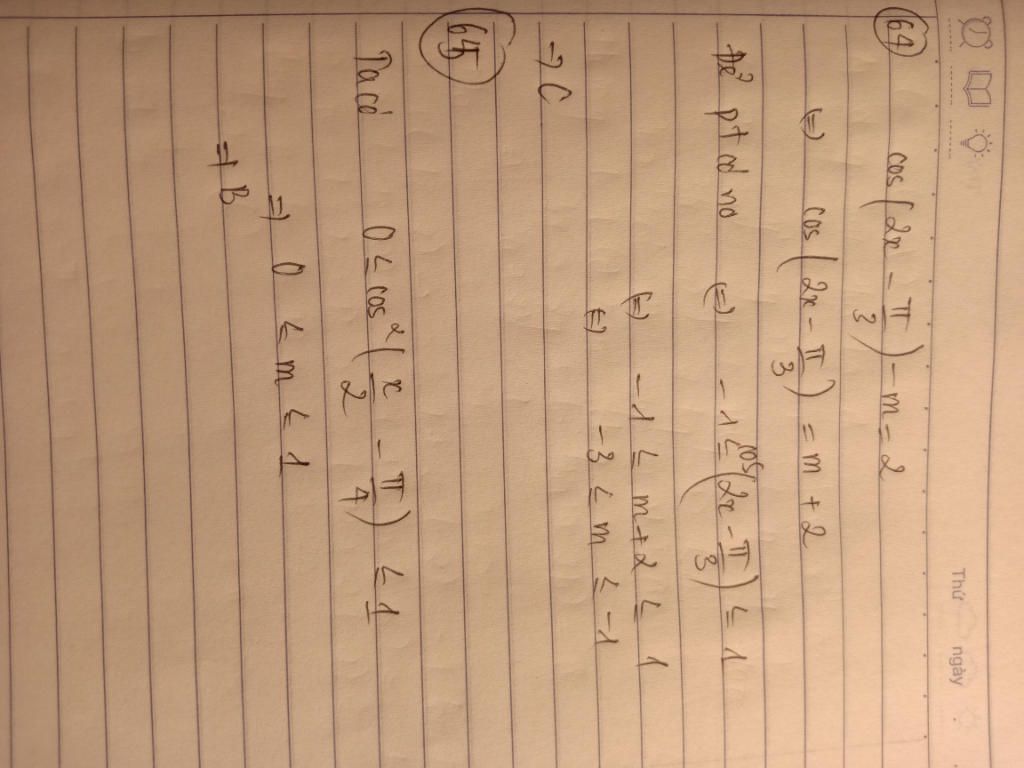 Thứ ngày
64
cos(2x - π/3) - m = 2
(=) cos(2x - π/3) = m + 2
Để pt có no (=) -1 ≤ cos(2x - π/3) ≤ 1
(=) -1 ≤ m + 2 ≤ 1
(=) -3 ≤ m ≤ -1
→ C
65
Ta có 0 ≤ cos²(x/2 - π/4) ≤ 1
=) 0 ≤ m ≤ 1
=) B